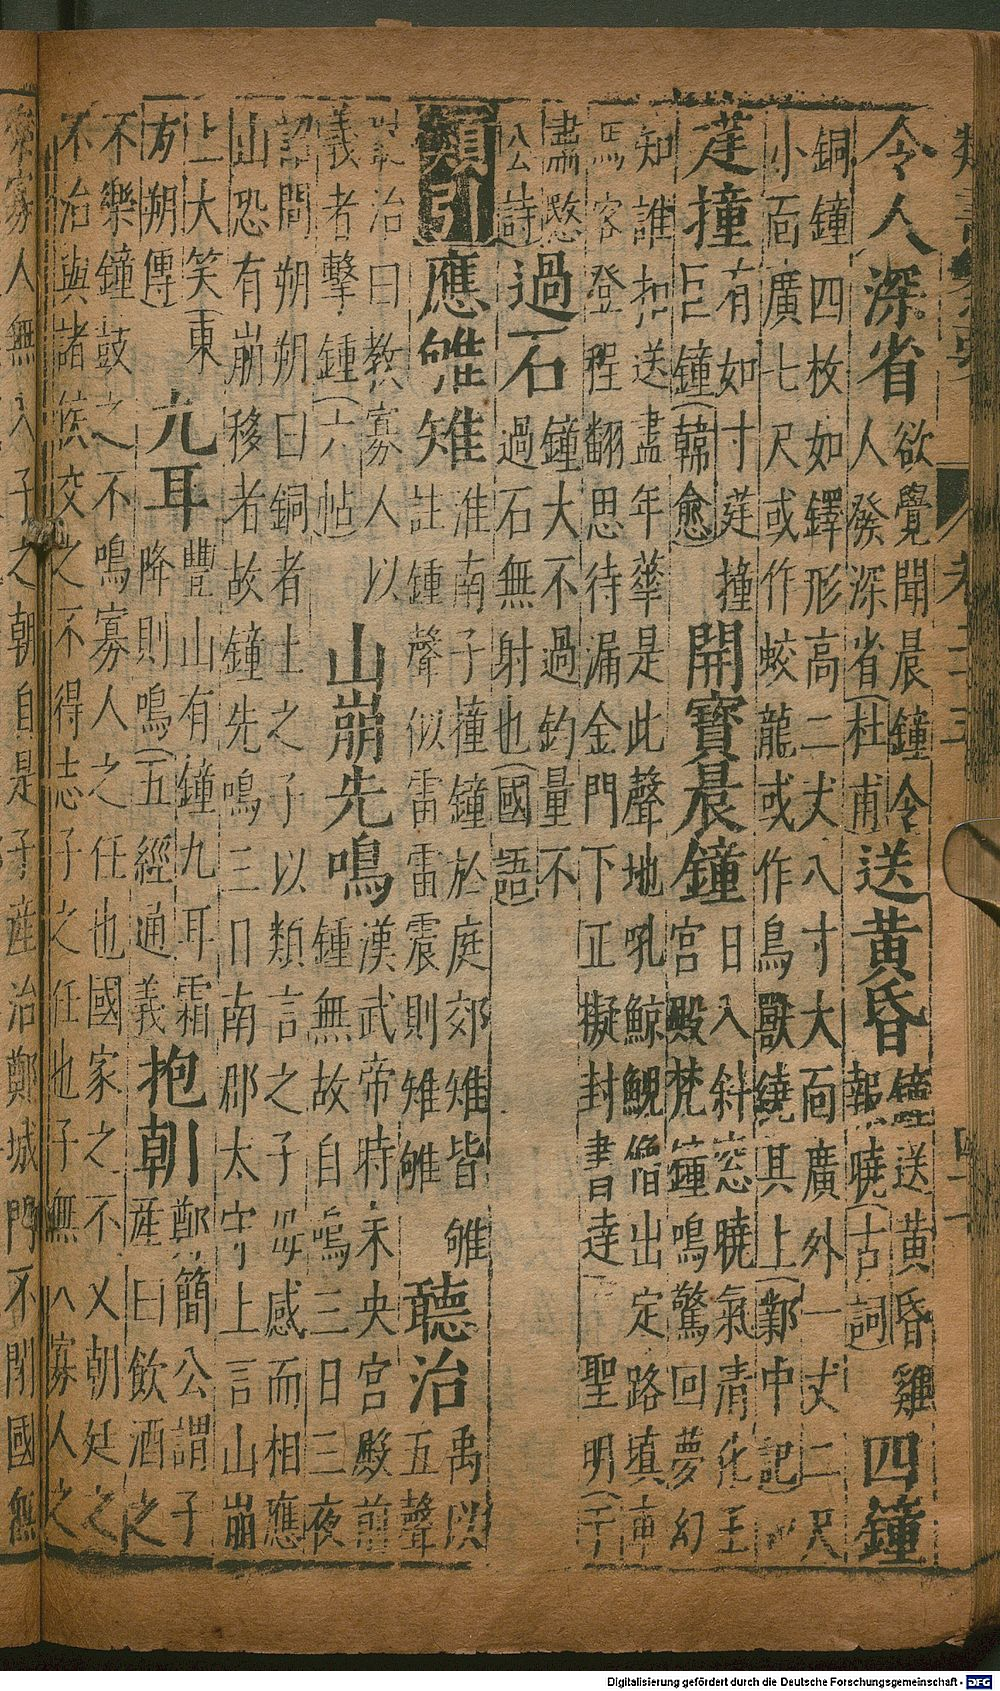 令人深省 欲覺聞晨鐘令
人發深省(杜甫
送黃昏 鐘送黃昏雞
報曉(古詞
四鐘
銅鐘四枚如鐸形高二丈八寸大面廣外一丈二尺
小面廣七尺或作蛟龍或作鳥獸繞其上(鄴中記
莛撞 有如寸莛撞
巨鐘(韓愈
開寶晨鐘 日入斜窓曉氣清化王
宮殿梵鍾鳴驚回夢幻
知誰扣送盡年華是此聲地吼鯨鯢僧出定路填車
馬客登程翻思待漏金門下正擬封書達 聖明(于
肅愍
公詩
過石 鐘大不過鈞量不
過石無射也(國語
類引
應雊雉 淮南子撞鐘於庭郊雉皆雊
註鍾聲似雷雷震則雉雊
聽治 禹以
五聲
治曰教寡人以
義者擊鍾(六帖
山崩先鳴 漢武帝時未央宮殿前
鍾無故自鳴三日三夜
詔問朔朔曰銅者土之子以類言之子母感而相應
山恐有崩移者故鐘先鳴三日南郡太守上言山崩
上大笑(東
方朔傳
九耳 豐山有鐘九耳霜
降則鳴(五經通義
抱朝 鄭簡公謂子
產曰飲酒之
不樂鐘鼓之不鳴寡人之任也國家之不乂朝廷之
不治與諸侯交之不得志子之任也子無入寡人之
樂寡人無入子之朝自是子產治鄭城門不閉國無
Digitalisierung gefördert durch die Deutsche Forschungsgemeinschaft - DFG